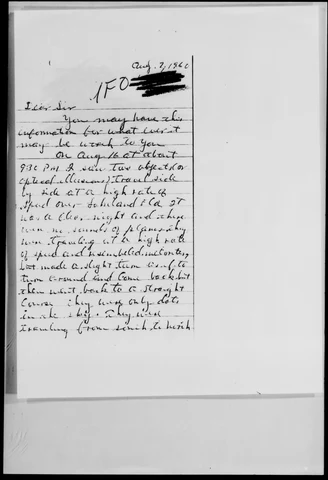 Aug. 7, 1960
IFO
Dear Sir
You may have this
information for what ever it
may be worth to you
On Aug 16 at about
930 P.M. I saw two objects (or
optical illusions) travel side
by side at a high rate of
speed over Fla. It
was a clear night and there
were no sounds of planes they
were traveling at a high rate
of speed and resembled meteors,
but made a slight turn as if to
turn around and come back but
then went back to a straight
course they were only dots
in the sky. They were
traveling from south to north